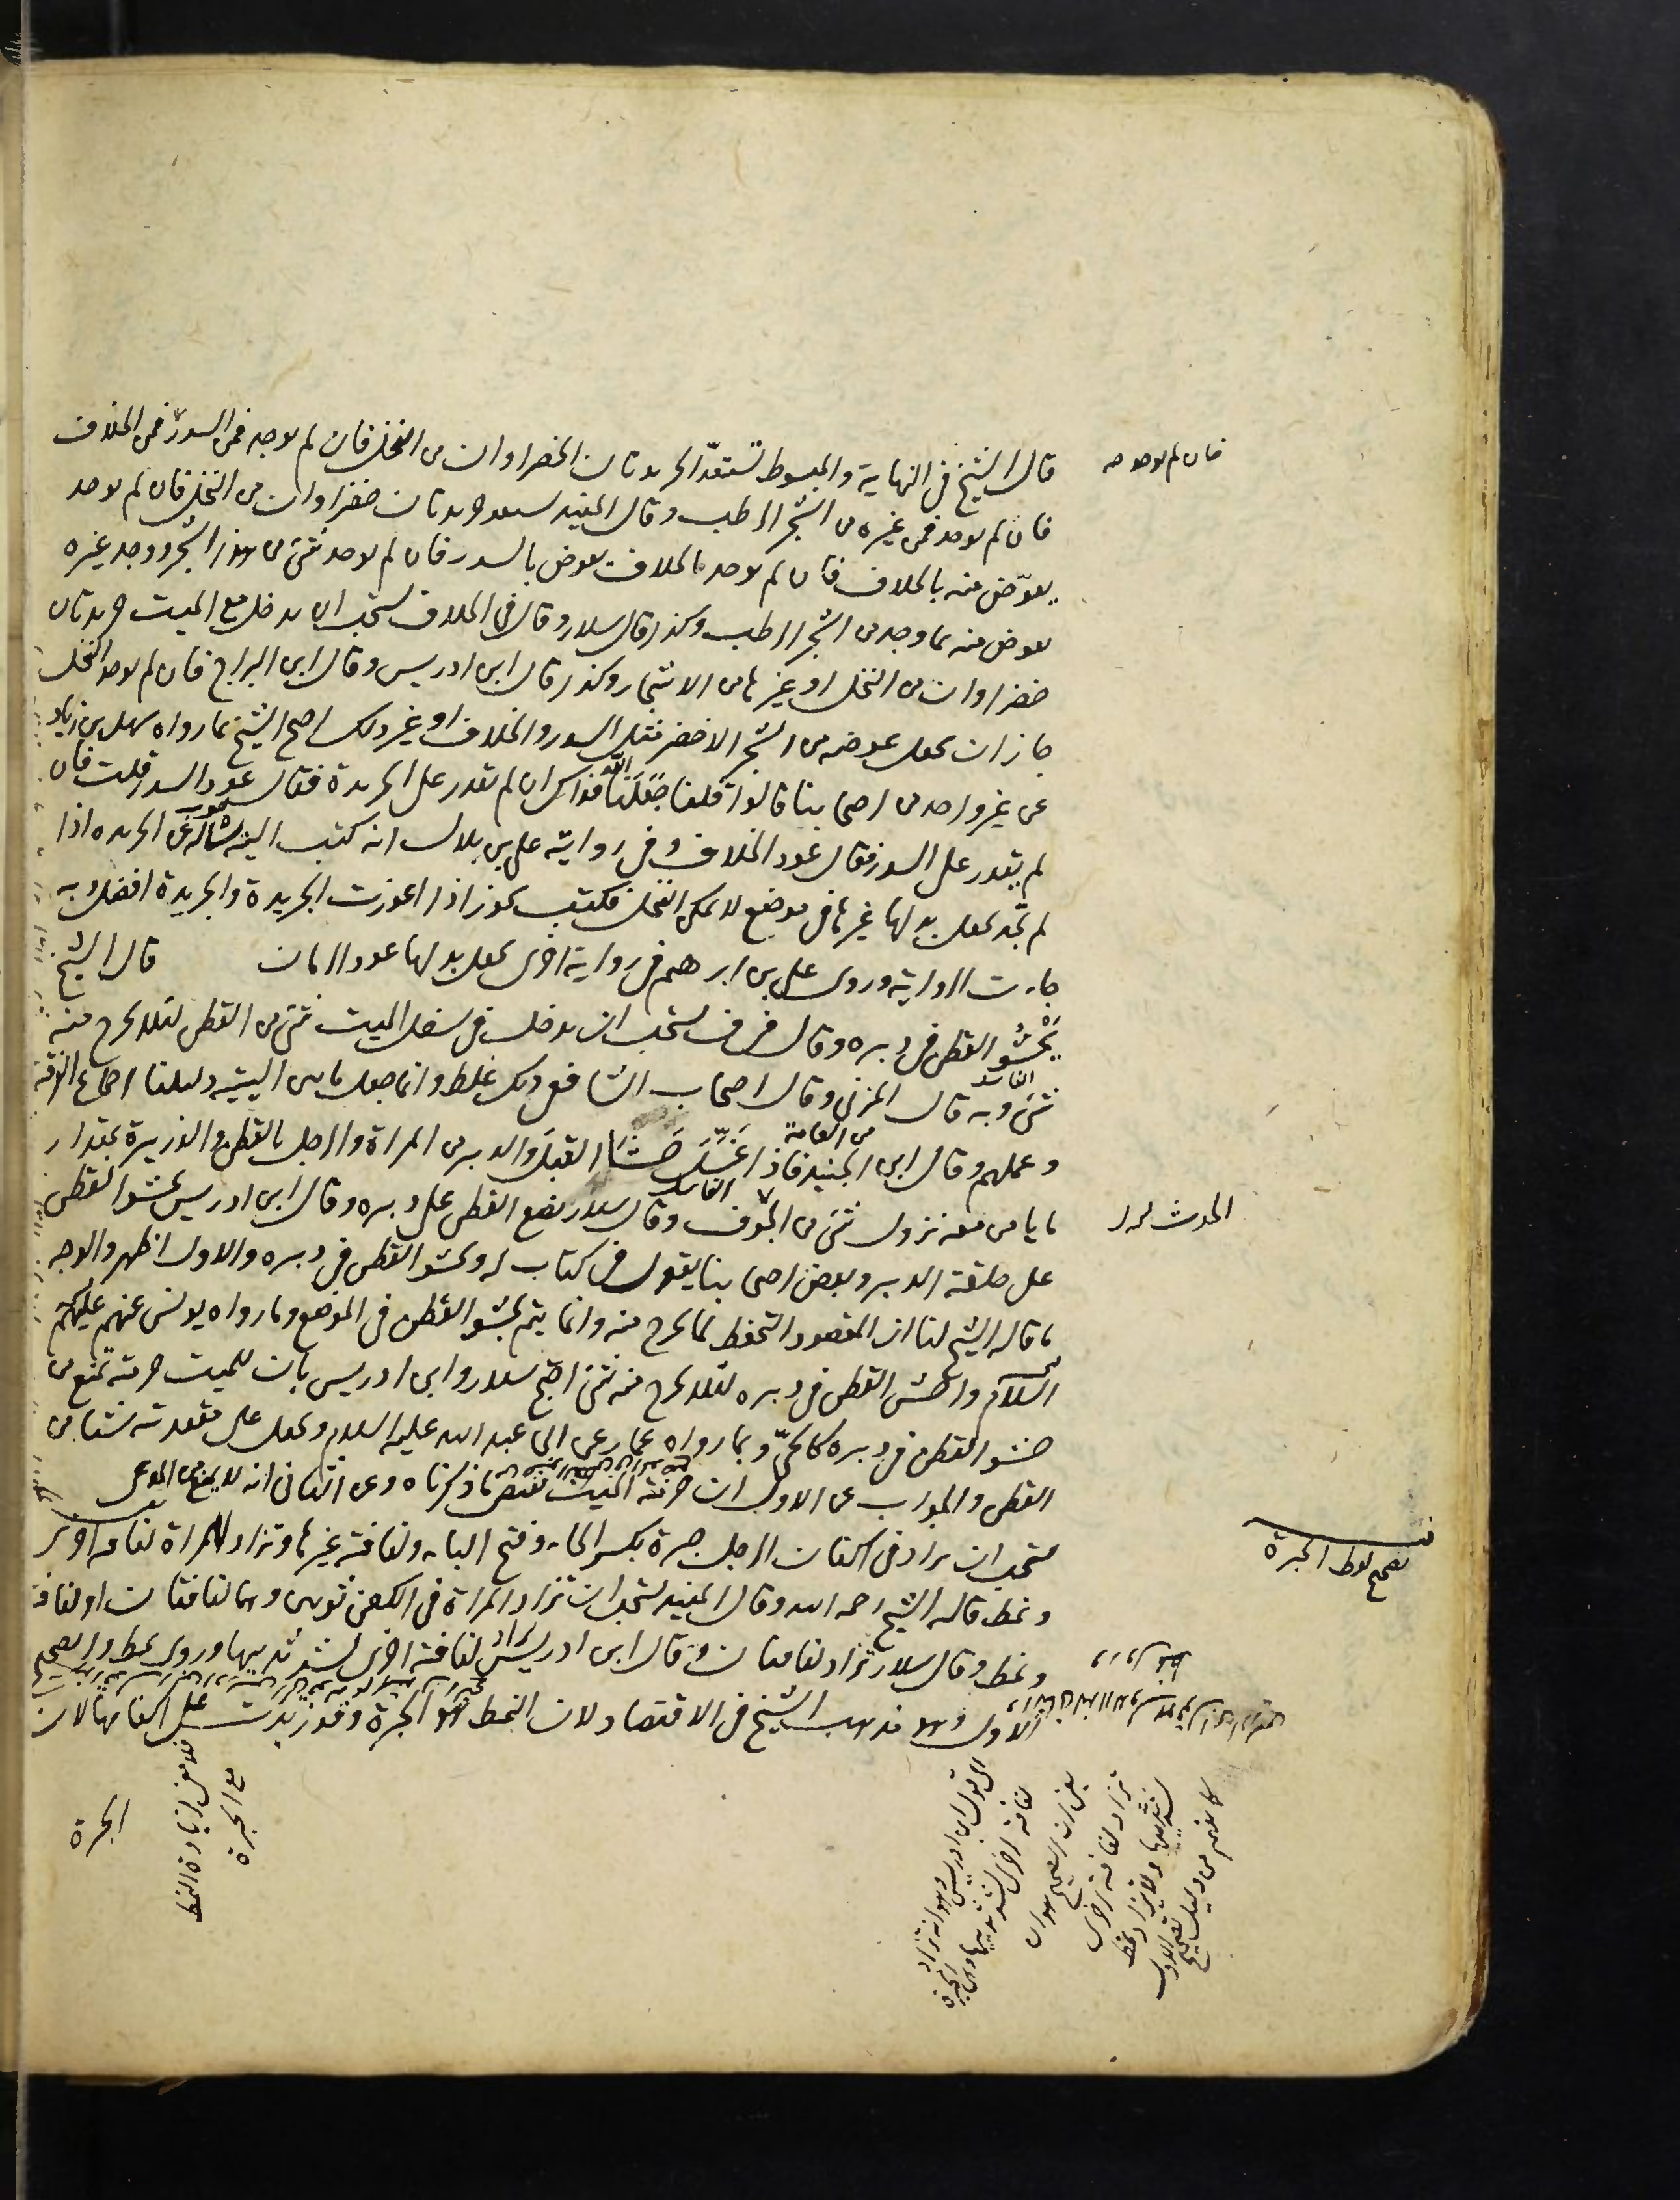 فان لم يوجد
قال الشيخ في النهاية والمبسوط تستعدّ الجريدتان الخضراوان من النخل فان لم يوجد فمن السدر فمن الخلاف
فان لم يوجد فمن غيره من الشجر الرطب وقال المفيد يستعد جريدتان خضراوان من النخل فان لم يوجد
يعوّض منه بالخلاف فان لم يوجد الخلاف يعوض بالسدر فان لم يوجد شئ من هذا الشجر ووجد غيره
يعوض منه بما وجد من الشجر الرطب وكذا قال سلار وقال في الخلاف يستحب ان يدخل مع الميت جريدتان
خضراوان من النخل او غيرها من الاشجار وكذا قال ابن ادريس وقال ابن البراج فان لم يوجد النخل
جاز ان يجعل عوضه من الشجر الاخضر مثل السدر والخلاف او غير ذلك احتج الشيخ بما رواه سهل بن زياد
عن غير واحد من اصحابنا قالوا قلنا جعلنا الله فداك ان لم نقدر على الجريدة فقال عود السدر قلت فان
لم يقدر على السدر فقال عود الخلاف وفي رواية علي بن بلال انه كتب اليه يسأله عن الجريدة اذا
لم نجد نجعل بدلها غيرها في موضع لا يمكن النخل فكتب يجوز اذا اعوزت الجريدة والجريدة افضل وبه
جاءت الرواية وروى علي بن ابرهيم في رواية اخرى يجعل بدلها عود الرمان قال الشيخ
يَحْشُو القطن في دبره وقال في ف يستحب ان يدخل في سفل الميت شئ من القطن لئلا يخرج منه
شئ وبه قال المزني وقال اصحاب الشافعي ذلك غلط وانما جعل ما بين اليتيه دليلنا اجماع الفرقة
من العامة
وعملهم وقال ابن الجنيد فاذا غسّل حشا القبل والدبر من المراة والرجل بالقطن والذريرة بمقدار
ما يامن معه نزول شئ من الجوف وقال سلار يضع القطن على دبره وقال ابن ادريس يحشو القطن
على حلقة الدبر وبعض اصحابنا يقول في كتاب له ويحشو القطن في دبره والاول اظهر والوجه
ما قاله الشيخ لنا ان المقصود التحفظ لما يخرج منه وانما يتم بحشو القطن في الموضع وما رواه يونس عنهم عليهم
السلام واحش القطن في دبره لئلا يخرج منه شئ احتج سلار وابن ادريس بان للميت حرمة تمنع من
حشو القطن في دبره كالحيّ وبما رواه عمار عن ابي عبد الله عليه السلام ويجعل على مقعدته شيئا من
القطن والجواب عن الاول ان حرمة الميت تقتضي ما ذكرناه وعن الثاني انه لا ينفي المدعى
يستحب ان يزاد في اكفان الرجل حبرة بكسر الحاء وفتح الباء ولفافة غيرها وتزاد للمراة لفافة اخرى
تصحيح لفظ الحبرة
ونمط قاله الشيخ رحمه الله وقال المفيد يستحب ان تزاد المراة في الكفن ثوبين وهما لفافتان او لفافة
ونمط وقال سلار تزاد لفافتان وقال ابن ادريس يزاد لفافة اخرى لشد ثدييها وروى نمط والصحيح
الاول وهو مذهب الشيخ في الاقتصاد لان النمط هو الحبرة وقد زيدت على اكفانها لان
فلا معنى لزيادة النمط
مع الحبرة
الحبرة
الى قول ابن ادريس وهو انه تزاد
لفافة اخرى لشد ثدييها وهي الحبرة
يعني ان الصحيح هو ان
تزاد لفافة اخرى
لشد ثدييها ولا يزاد نمط
كما يفهم من دليل تصحيح الاول